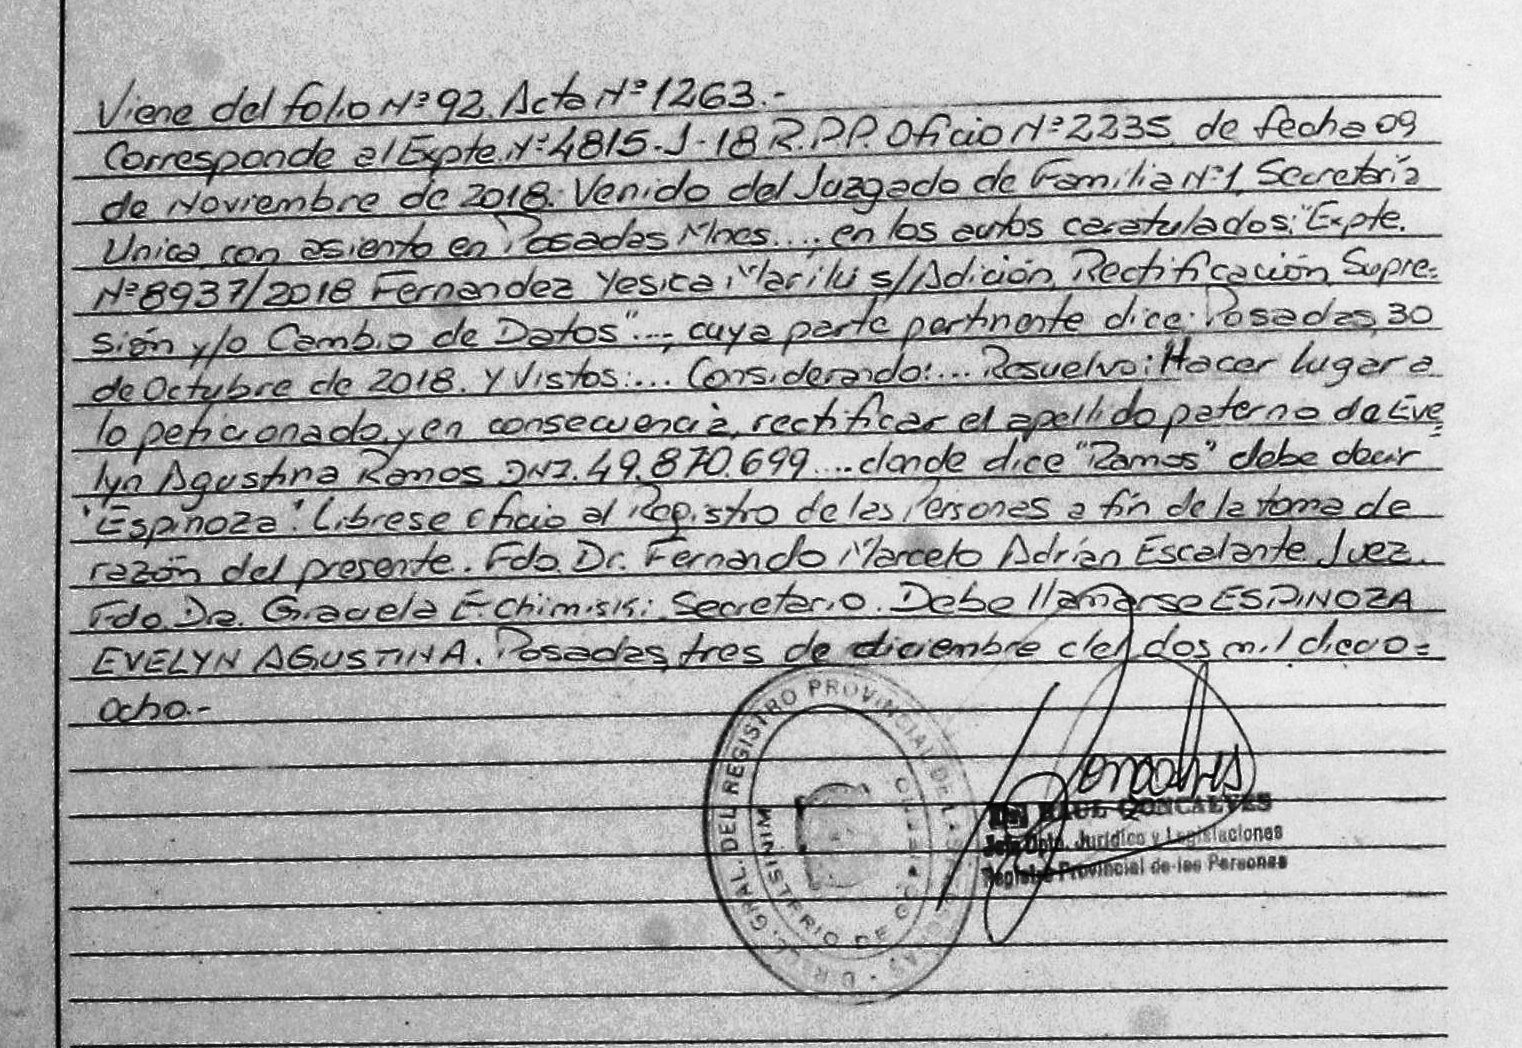 Viene del folio Nº 92. Acta Nº 1263.-
Corresponde al Expte. Nº 4815-J-18 R.P.P. Oficio Nº 2235 de fecha 09
de Noviembre de 2018. Venido del Juzgado de Familia Nº 1, Secretaria
Unica con asiento en Posadas Mnes...., en los autos caratulados: "Expte.
Nº 8937/2018 Fernandez Yesica Marilu s/Adición, Rectificación, Supre=
sión y/o Cambio de Datos"..., cuya parte pertinente dice: Posadas, 30
de Octubre de 2018. Y Vistos:... Considerando:... Resuelvo: Hacer lugar a
lo peticionado, y en consecuencia, rectificar el apellido paterno de Eve=
lyn Agustina Ramos DNI. 49.870.699.... donde dice "Ramos" debe decir
"Espinoza". Librese oficio al Registro de las Personas a fin de la toma de
razón del presente. Fdo. Dr. Fernando Marcelo Adrián Escalante Juez.
Fdo. Dra. Graciela Echimiski: Secretario. Debe llamarse ESPINOZA
EVELYN AGUSTINA. Posadas, tres de diciembre del dos mil dieci o=
ocho.-
DEL REGISTRO PROVINCIAL DE LAS
GRAL.
MINISTERIO DE
RAUL GONCALVES
Jefe Dpto. Jurídico y Legislaciones
Registro Provincial de las Personas